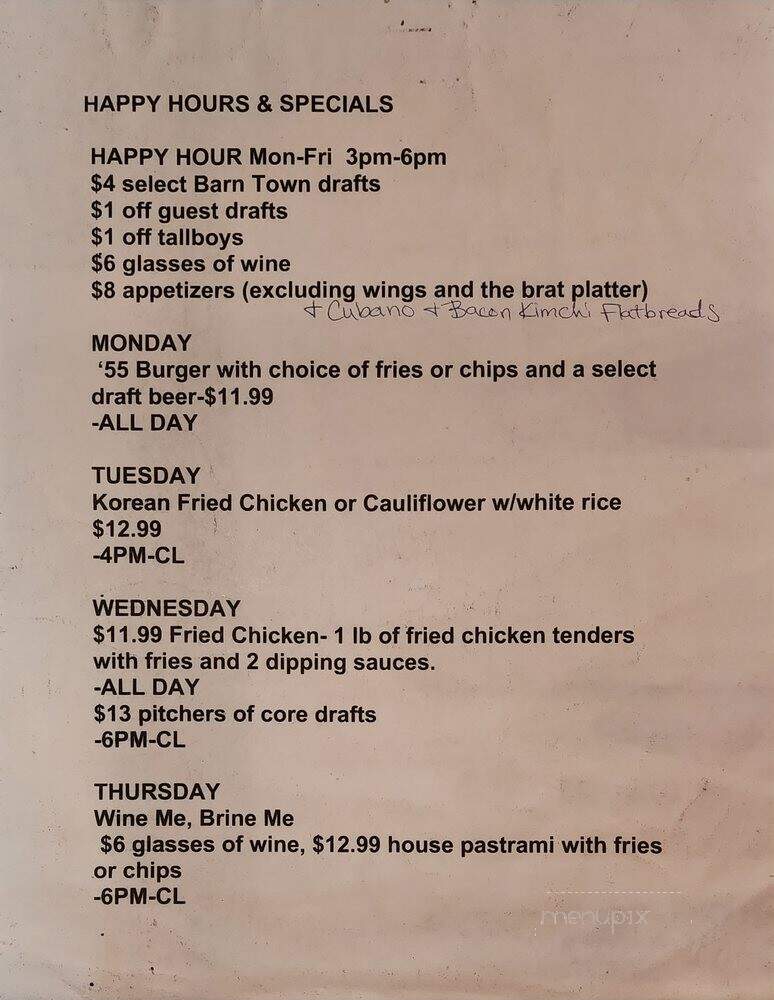 HAPPY HOURS & SPECIALS
HAPPY HOUR Mon-Fri 3pm-6pm
$4 select Barn Town drafts
$1 off guest drafts
$1 off tallboys
$6 glasses of wine
$8 appetizers (excluding wings and the brat platter)
+ Cubano + Bacon Kimchi Flatbreads
MONDAY
‘55 Burger with choice of fries or chips and a select
draft beer-$11.99
-ALL DAY
TUESDAY
Korean Fried Chicken or Cauliflower w/white rice
$12.99
-4PM-CL
WEDNESDAY
$11.99 Fried Chicken- 1 lb of fried chicken tenders
with fries and 2 dipping sauces.
-ALL DAY
$13 pitchers of core drafts
-6PM-CL
THURSDAY
Wine Me, Brine Me
$6 glasses of wine, $12.99 house pastrami with fries
or chips
-6PM-CL
menupix